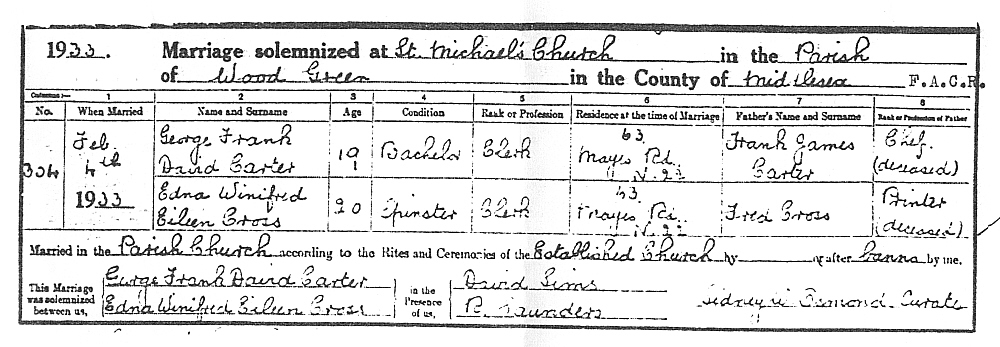 1933. Marriage solemnized at St. Michael's Church in the Parish
of Wood Green in the County of Middlesex F.A.C.R.
Columns:— 1 2 3 4 5 6 7 8
No. When Married Name and Surname Age Condition Rank or Profession Residence at the time of Marriage Father's Name and Surname Rank or Profession of Father
304 Feb. 4th 1933
George Frank David Carter 19 Bachelor Clerk 63 Mayes Rd. N.22 Frank James Carter Chef. (deceased)
Edna Winifred Eileen Cross 20 Spinster Clerk 63. Mayes Rd. N.22 Fred Cross Printer (deceased)
Married in the Parish Church according to the Rites and Ceremonies of the Established Church by or after banns by me,
This Marriage was solemnized between us, George Frank David Carter Edna Winifred Eileen Cross in the Presence of us, David Sims Saunders Curate